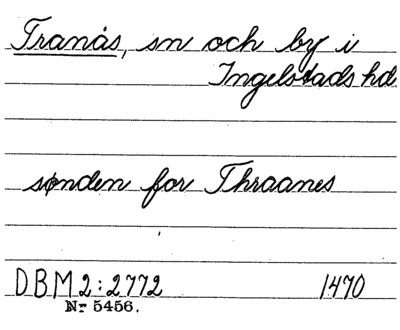 Tranås, sn och by i
Ingelstads hd
sønden for Thraanes
DBM 2:2772 1470
Nr 5456.